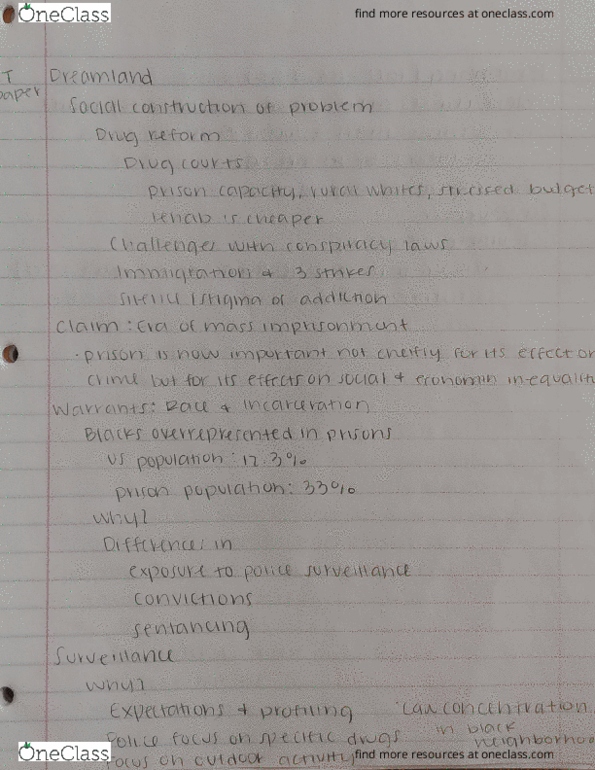 OneClass
find more resources at oneclass.com
T paper
Dreamland
Social construction of problem
Drug reform
Drug courts
prison capacity, rural whites, budget
rehab is cheaper
Challenges with conspiracy laws
Immigration & 3 strikes
stigma of addiction
Claim: Era of mass imprisonment
· prison is now important not cheifly for its effect on
crime but for its effects on social + inequalit
Warrants: Race & incarceration
Blacks overrepresented in prisons
US population: 12.3%
prison population: 33%
Why?
Differences in
exposure to police surveillance
convictions
sentancing
Surveillance
Why?
Expectations & profiling
concentration
in black
neighborhoo
Police focus on specific drugs
Focus on outdoor activity
OneClass
find more resources at oneclass.com